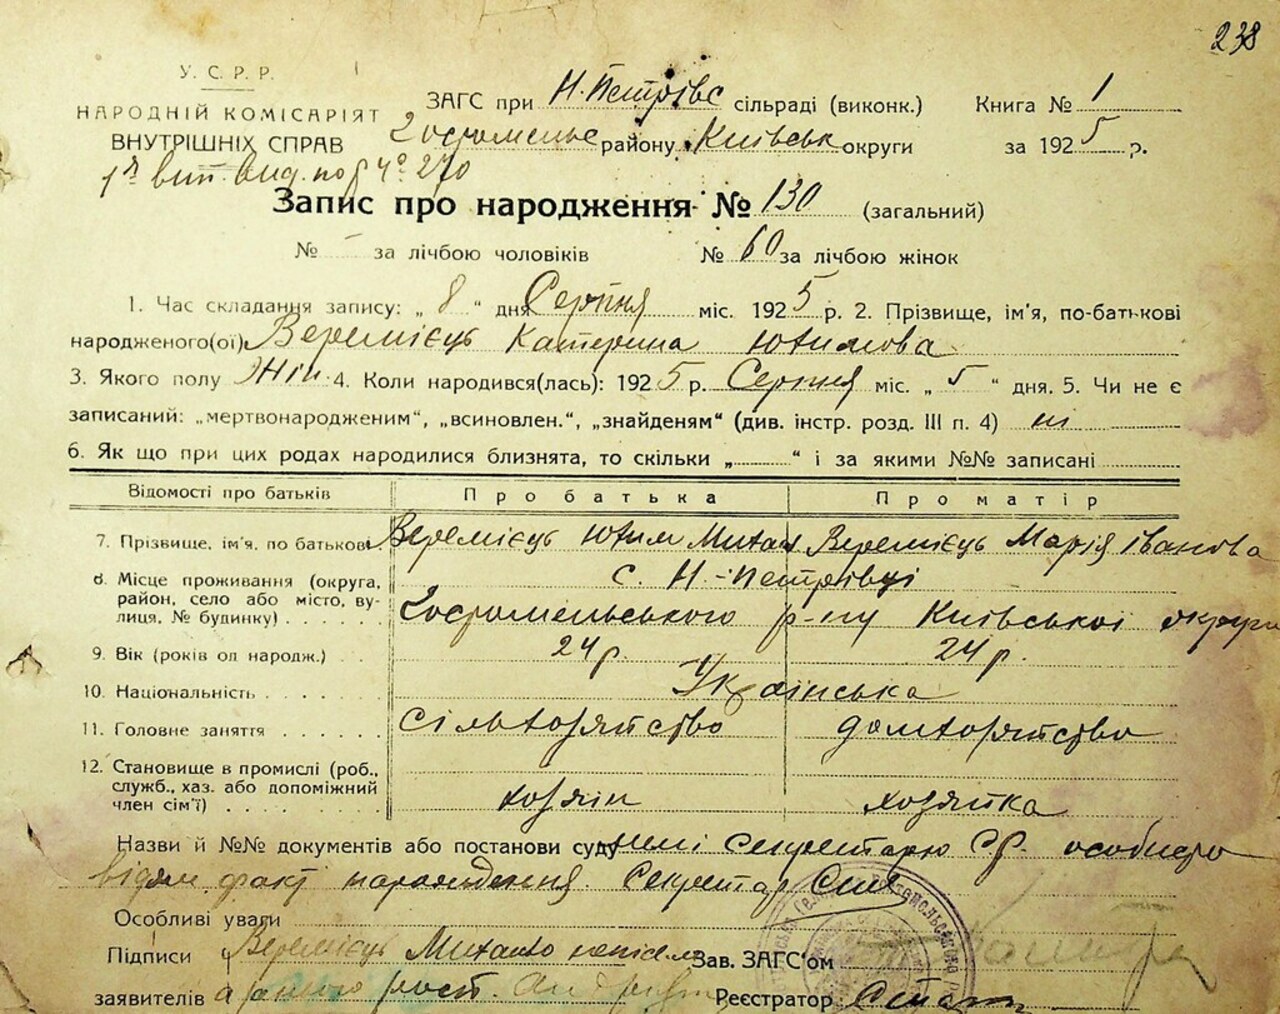 238
У. С. Р. Р.
НАРОДНІЙ КОМІСАРІЯТ
ВНУТРІШНІХ СПРАВ
ЗАГС при Н. Петрівс сільраді (виконк.)
Книга № 1
Гостомельс району Київськ округи
за 1925 р.
Запис про народження № 130 (загальний)
№ - за лічбою чоловіків № 60 за лічбою жінок
1. Час складання запису: „ 8 “ дня Серпня міс. 1925 р. 2. Прізвище, ім'я, по-батькові
народженого(ої) Веремієць Катерина Юхимова
3. Якого полу Жін. 4. Коли народився(лась): 1925 р. Серпня міс. „ 5 “ дня. 5. Чи не є
записаний: „мертвонародженим“, „всиновлен.“, „знайденям“ (див. інстр. розд. III п. 4) ні
6. Як що при цих родах народилися близнята, то скільки „ “ і за якими №№ записані
Відомості про батьків Про батька Про матір
7. Прізвище, ім'я, по батькові Веремієць Юхим Михай Веремієць Марія Іванова
8. Місце проживання (округа, район, село або місто, вулиця, № будинку) с. Н.-Петрівці
Гостомельського р-ну Київської округи
9. Вік (років од народж.) 24 р. 24 р.
10. Національність Українська
11. Головне заняття сільхозяйство домхозяйство
12. Становище в промислі (роб., служб., хаз. або допоміжний член сім'ї) хозяін хозяйка
Назви й №№ документів або постанови суду мені Секретарю СР. особисто
відом факт народження. Секретар
Особливі уваги
Підписи Веремієць Михайло Зав. ЗАГС'ом
заявителів Реєстратор